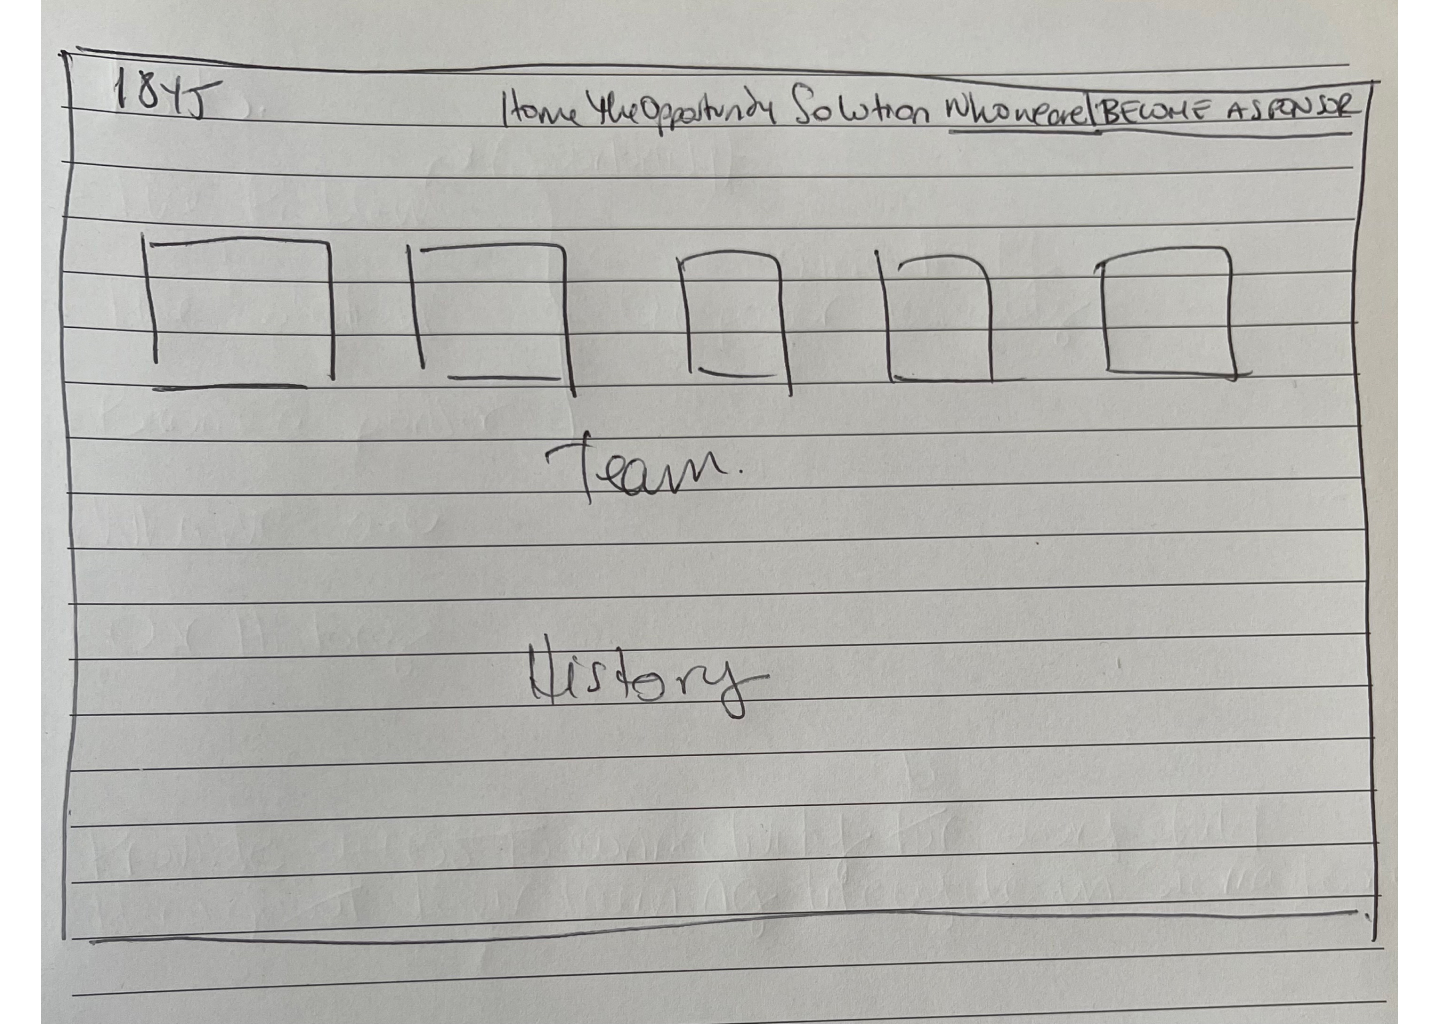 18YJ
Home The Opportunity Solution Who we are BECOME A SPONSOR
Team.
History